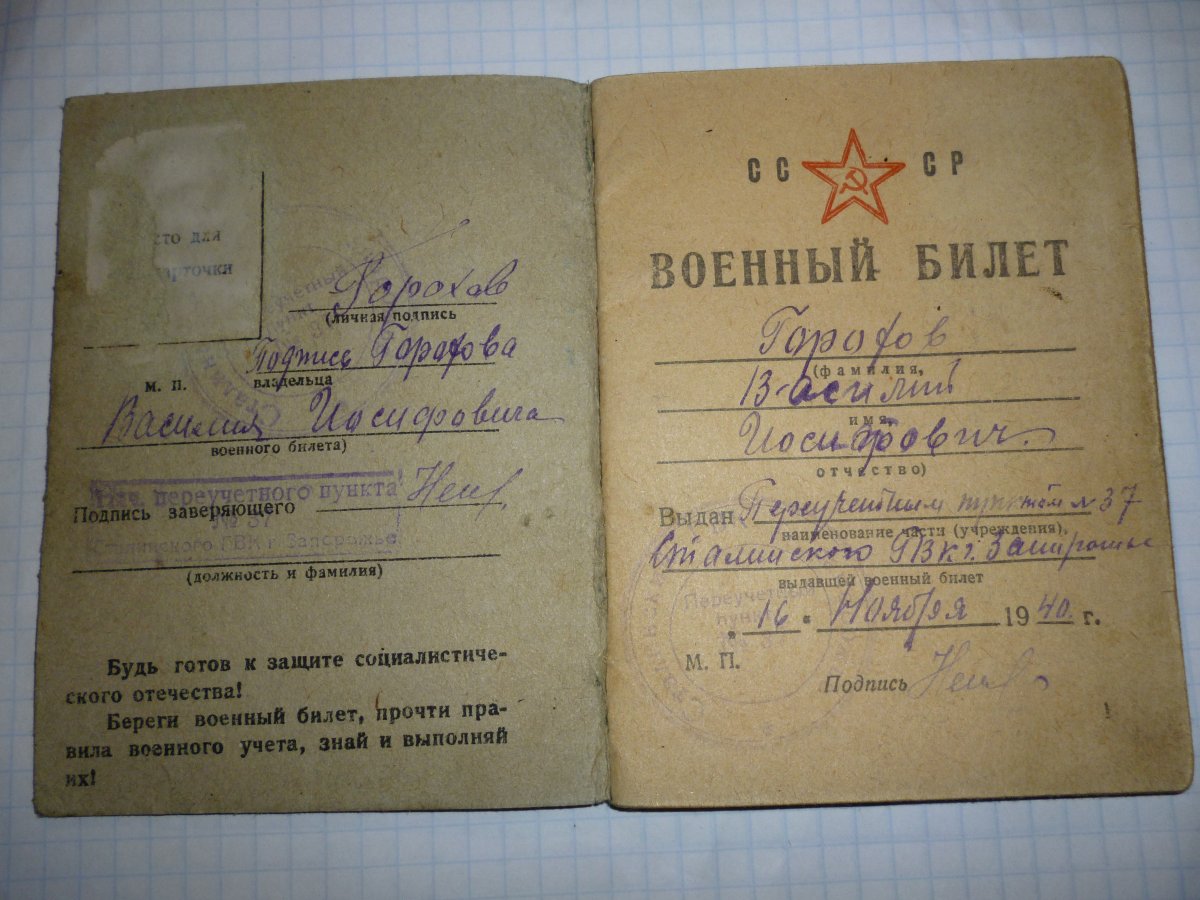 сто для
арточки
Горохов
(личная подпись
Подпись Горохова
М. П.
владельца
Василия Иосифовича
военного билета)
Нач. переучетного пункта
№ 37
Сталинского ГВК г. Запорожье
Подпись заверяющего
(должность и фамилия)
Будь готов к защите социалистиче-
ского отечества!
Береги военный билет, прочти пра-
вила военного учета, знай и выполняй
их!
СС СР
ВОЕННЫЙ БИЛЕТ
Горохов
(фамилия,
Василий
имя,
Иосифович.
отчество)
Выдан Переучетным пунктом № 37
наименование части (учреждения),
Сталинского ГВК г. Запорожье
выдавшей военный билет
Переучетный
пункт
„16" Ноября 1940 г.
М. П.
Подпись